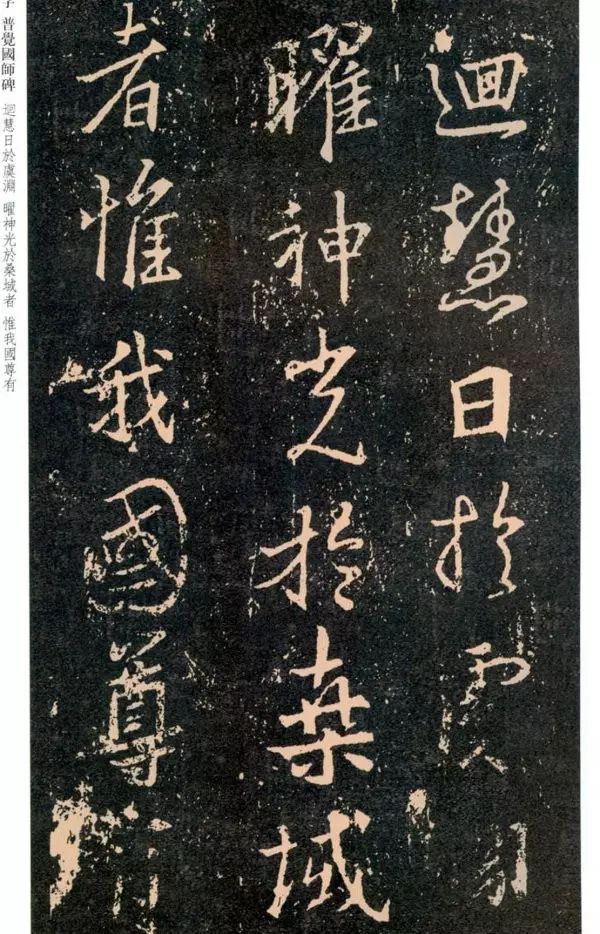 迴慧日於虞淵
曜神光於桑域
者惟我國尊有
普覺國師碑
迴慧日於虞淵 曜神光於桑域者 惟我國尊有